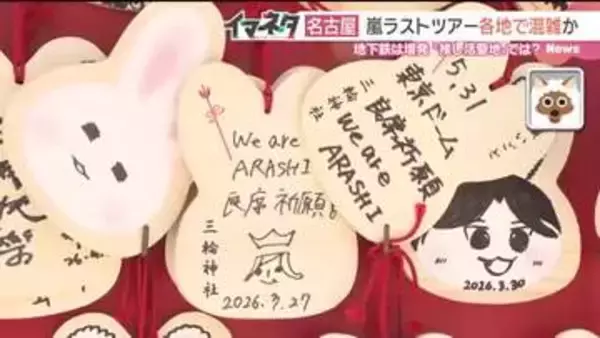 イマネタ 名古屋 嵐ラストツアー各地で混雑か
地下鉄は増発 “推し活聖地”では? News
We are
ARASHI
良席祈願
三輪神社
2026.3.27
5.31
東京ドーム
良席祈願
We are
ARASHI
三輪神社
2026.3.30